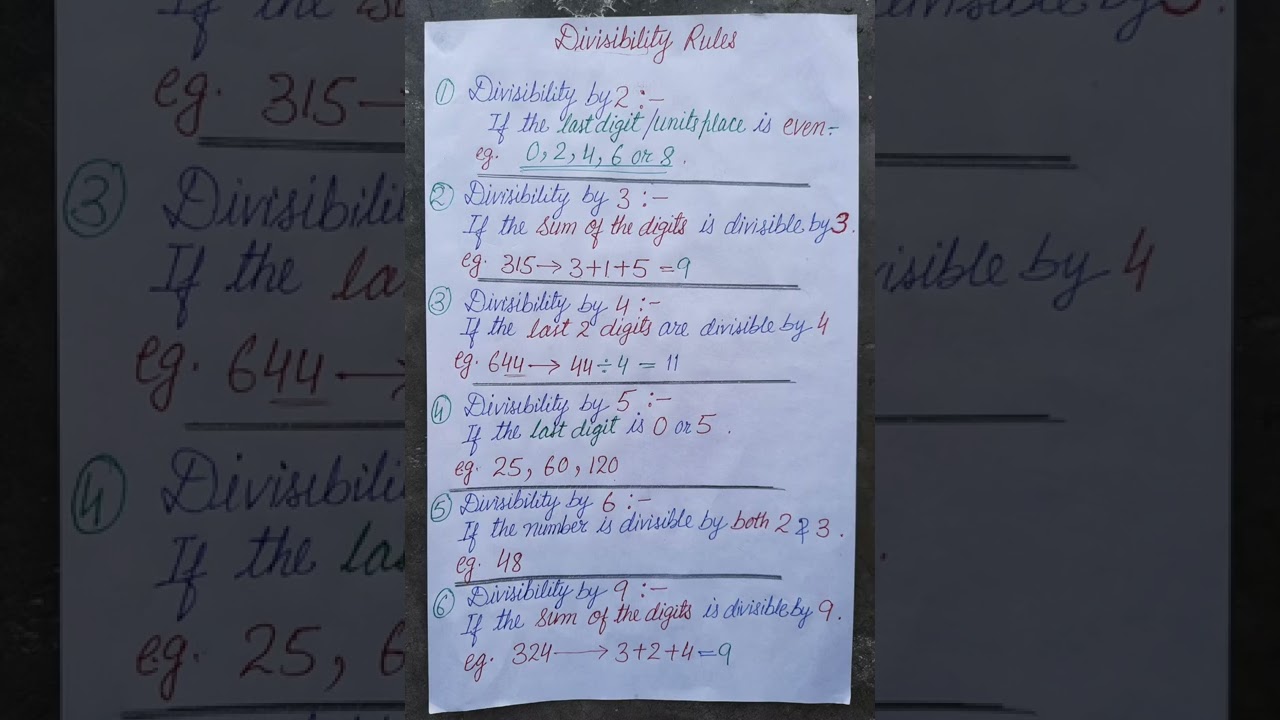 Divisibility Rules
① Divisibility by 2 :-
If the last digit/units place is even:-
eg. 0, 2, 4, 6 or 8.
② Divisibility by 3 :-
If the sum of the digits is divisible by 3.
eg. 315 → 3+1+5 = 9
③ Divisibility by 4 :-
If the last 2 digits are divisible by 4
eg. 644 → 44 ÷ 4 = 11
④ Divisibility by 5 :-
If the last digit is 0 or 5.
eg. 25, 60, 120
⑤ Divisibility by 6 :-
If the number is divisible by both 2 & 3.
eg. 48
⑥ Divisibility by 9 :-
If the sum of the digits is divisible by 9.
eg. 324 → 3+2+4 = 9